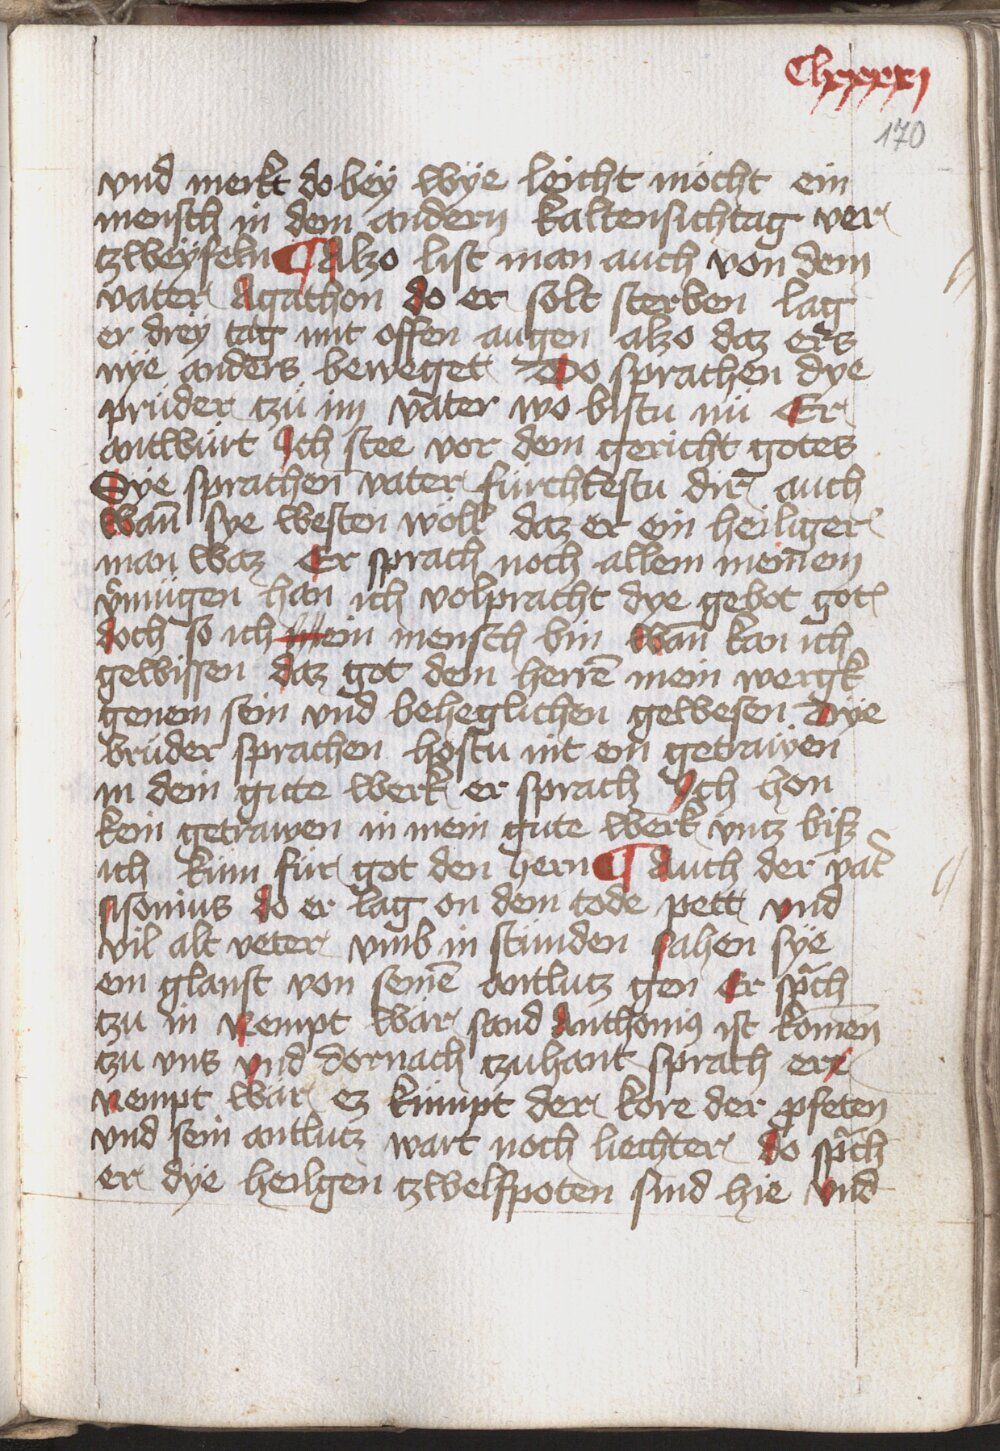 Clxxxxj
170
vnd merkt do bey wye leicht möcht ein
mensch in dem andern kaltensichtag ver
tzweyfeln ¶ Alzo list man auch von dem
vater Agathon do er solt sterben lag
er drey tag mit offen augen alzo daz ers
nye anders beweget Do sprachen dye
prüder tzü im vater wo bistu nü Er
antwürt Jch stee vor dem gericht gotes
Sye sprachen vater fürchtestu dir auch
wan̄ sye westen woll daz er ein heiliger
man waz Er sprach noch allem meinem
v̾mügen han ich volpracht dye gebot got
doch so ich ein mensch bin wan̄ kan ich
gewissen daz got dem herrē mein wergk
genem sein vnd beheglichen gewesen Dye
brüder sprachen hostu nit ein getrawen
in dein gute werk er sprach Jch hon
kein getrawen in mein gute werk vntz bisz
ich küm für got den hern ¶ Auch der vat̾
sisonius do er lag on dem tode pett vnd
vil alt veter vmb in stünden sahen sye
ein glanst von seinē antlutz gen Er sp̄ch
tzu in nempt war sand Anthoni9 ist komen̄
tzu vns vnd dornach tzuhant sprach er
nempt war ez kümpt der kore der p̄feten
vnd sein antlutz wart noch liechter do sp̄ch
er dye heilgen tzwelfpoten sind hie vnd